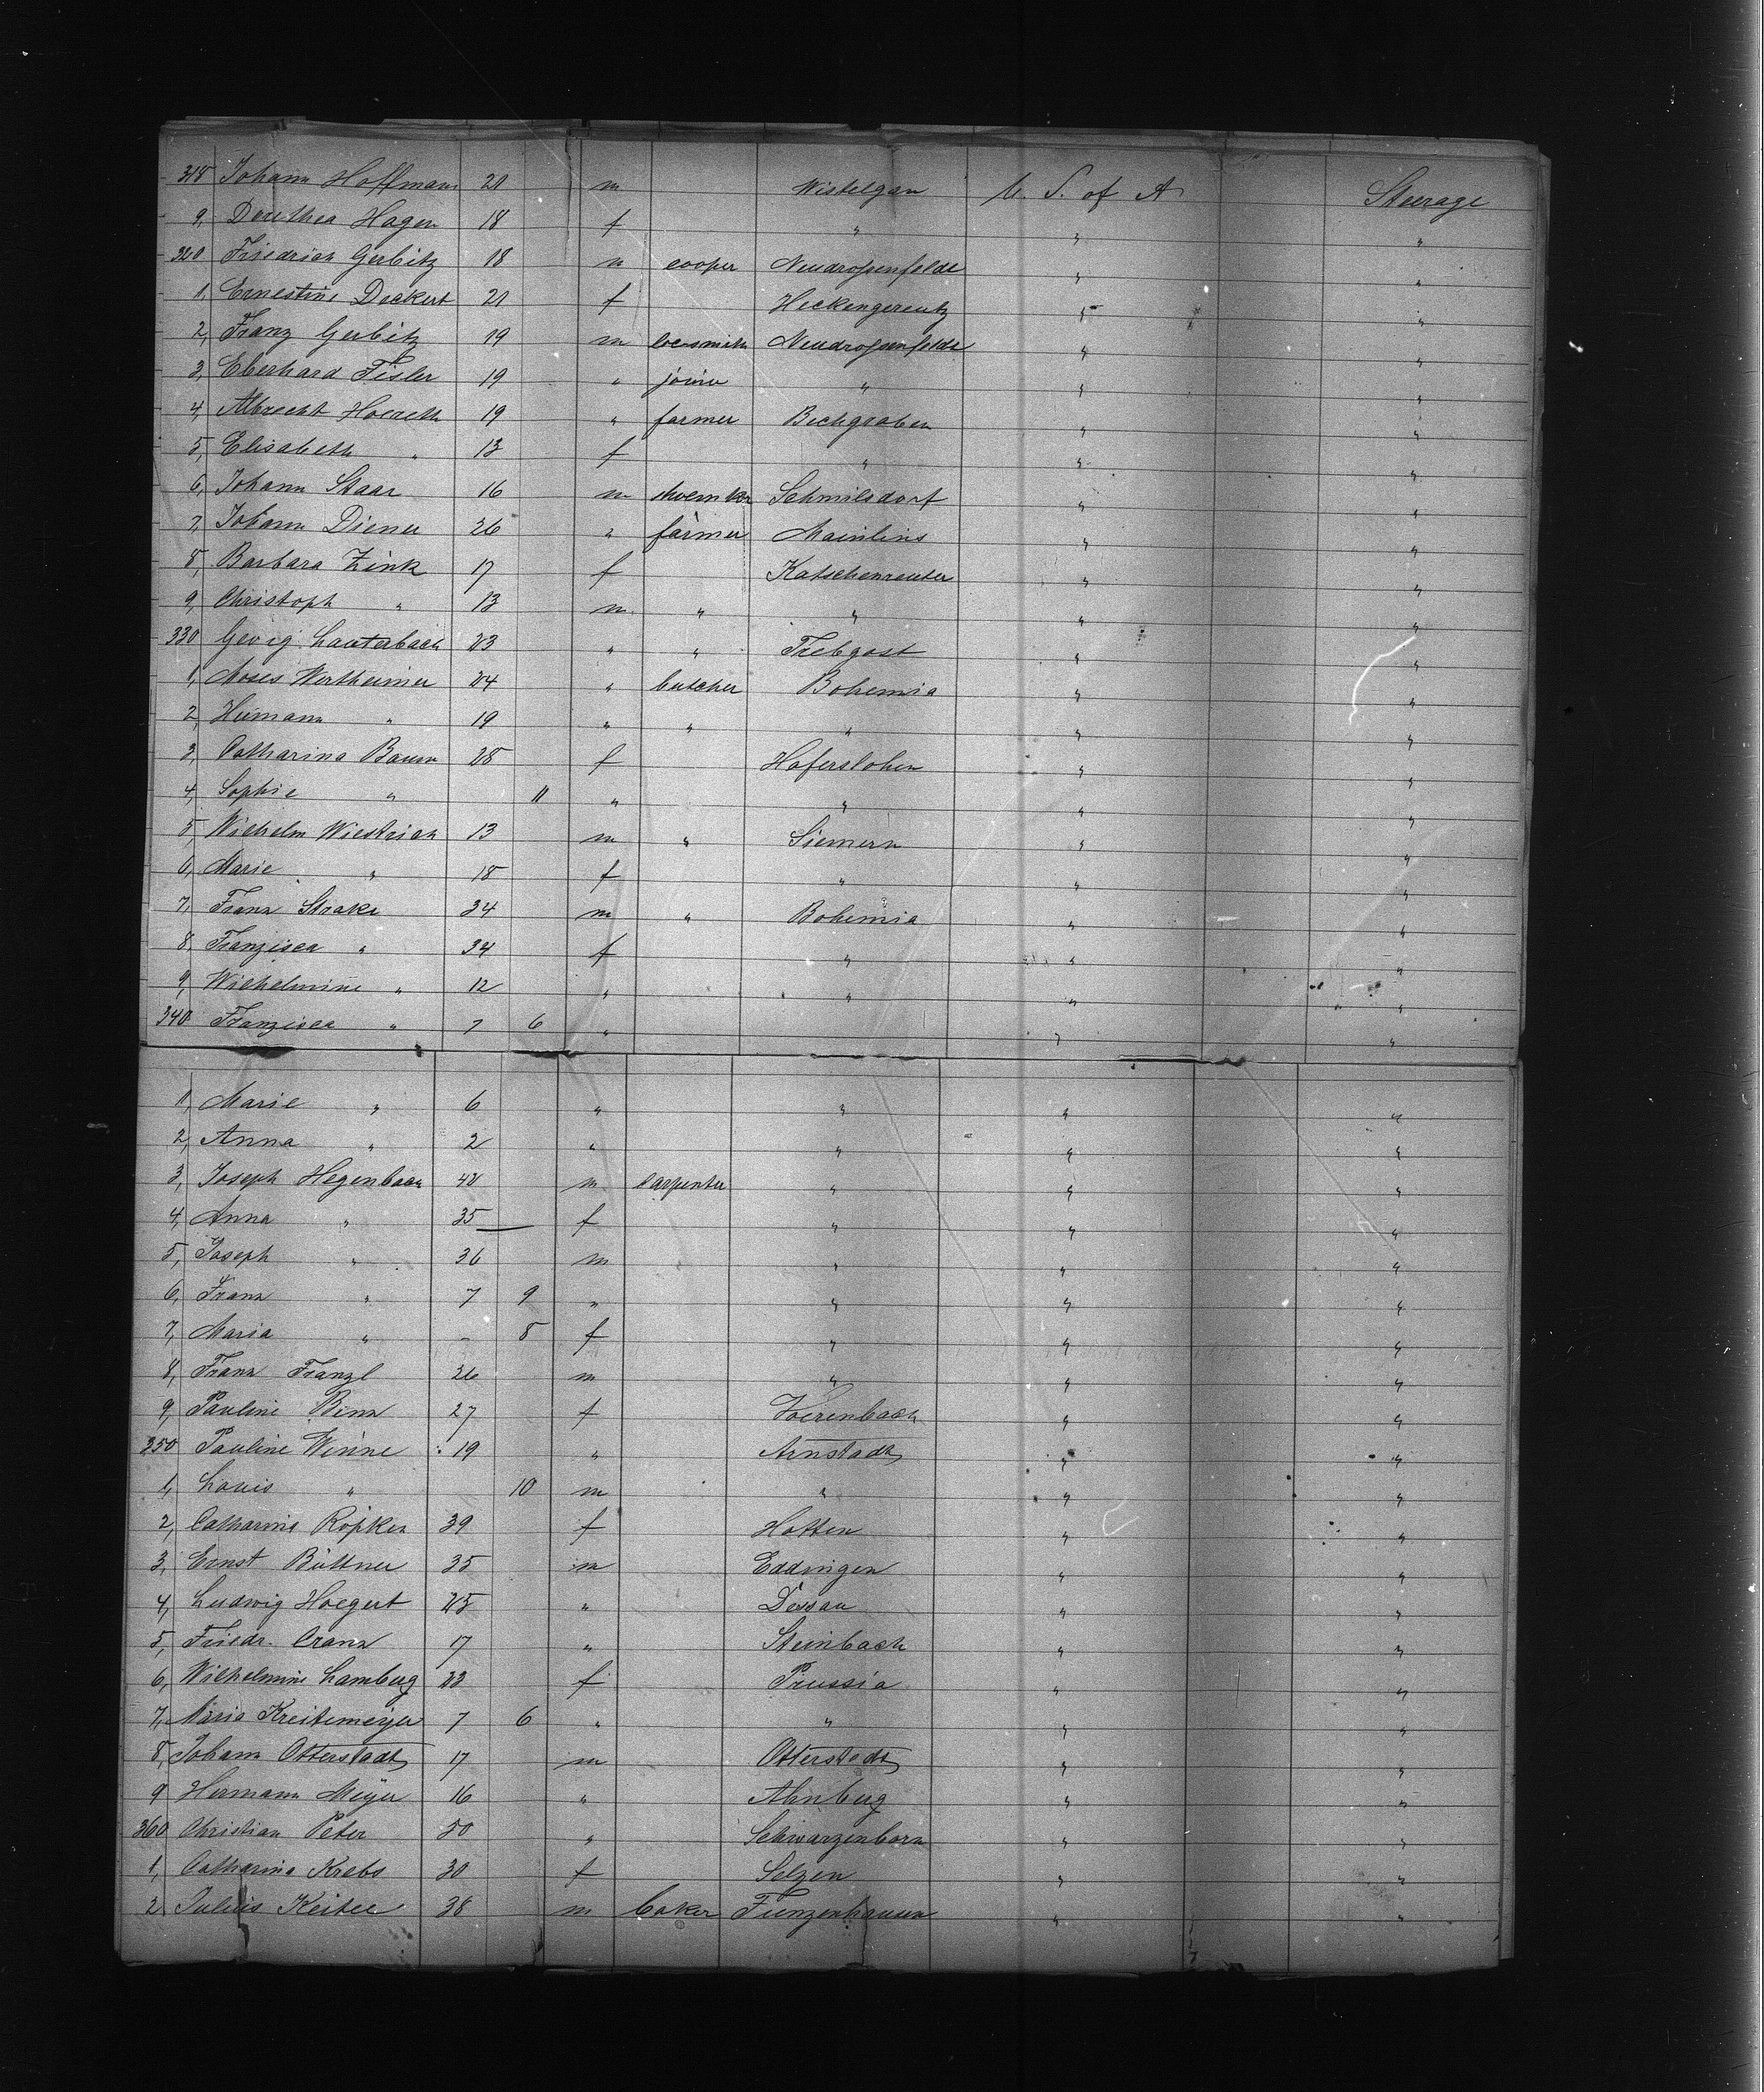 318 Johann Hoffmann 20 m Wistelgau U. S. of A Steerage
9, Dorothea Hagen 18 f " " "
320 Friedrich Gerbitz 18 m cooper Neudropenfeldt " "
1, Ernestine Deckert 20 f Heckengereutz " "
2, Franz Gerbitz 19 m locsmith Neudropenfeldt " "
3, Eberhard Fisler 19 " joiner " " "
4, Albrecht Hoereth 19 " farmer Bechgraben " "
5, Elisabeth " 13 f " " "
6, Johann Staar 16 m shoemkr Schmilsdorf " "
7, Johann Diener 26 " farmer Mainlins " "
8, Barbara Zink 17 f Katschenreuter " "
9, Christoph " 13 m " " " "
330 Georg Lauterbach 23 " " Trebgast " "
1, Moses Wertheimer 24 " butcher Bohemia " "
2, Hermann " 19 " " " " "
3, Catharina Baum 28 f Haferslohen " "
4, Sophie " 11 " " " "
5, Wilhelm Wiestrich 13 m " Siemern " "
6, Marie " 18 f " " "
7, Franz Strake 34 m " Bohemia " "
8, Franzisca " 34 f " " "
9, Wilhelmine " 12 " " " "
340 Franzisca " 7 6 " " "
1, Marie " 6 " " " "
2, Anna " 2 " " " "
3, Joseph Hegenbach 48 m carpenter " " "
4, Anna " 35 f " " "
5, Joseph " 36 m " " "
6, Franz " 7 9 " " " "
7, Maria " - 8 f " " "
8, Franz Franzl 26 m " " "
9, Pauline Binz 27 f Voerenbach " "
350 Pauline Winne 19 " Arnstadt " "
1, Louis " 10 m " " "
2, Catharine Röpken 39 f Hatten " "
3, Ernst Büttner 35 m Eddingen " "
4, Ludwig Hoegert 25 " Dessau " "
5, Friedr. Cranz 17 " Steinbach " "
6, Wilhelmine Lamberg 23 f Prussia " "
7, Maria Kreitemeyer 7 6 " " " "
8, Johann Otterstadt 17 m Otterstedt " "
9 Hermann Meyer 16 " Ahnberg " "
360 Christian Peter 50 " Schwarzenborn " "
1, Catharina Krebs 30 f Selzen " "
2, Julius Keitel 38 m baker Funzenhausen " "